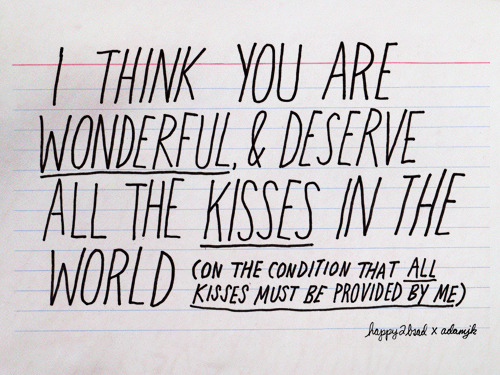 I THINK YOU ARE
WONDERFUL, & DESERVE
ALL THE KISSES IN THE
WORLD (ON THE CONDITION THAT ALL
KISSES MUST BE PROVIDED BY ME)
happy2bsad x adamjk